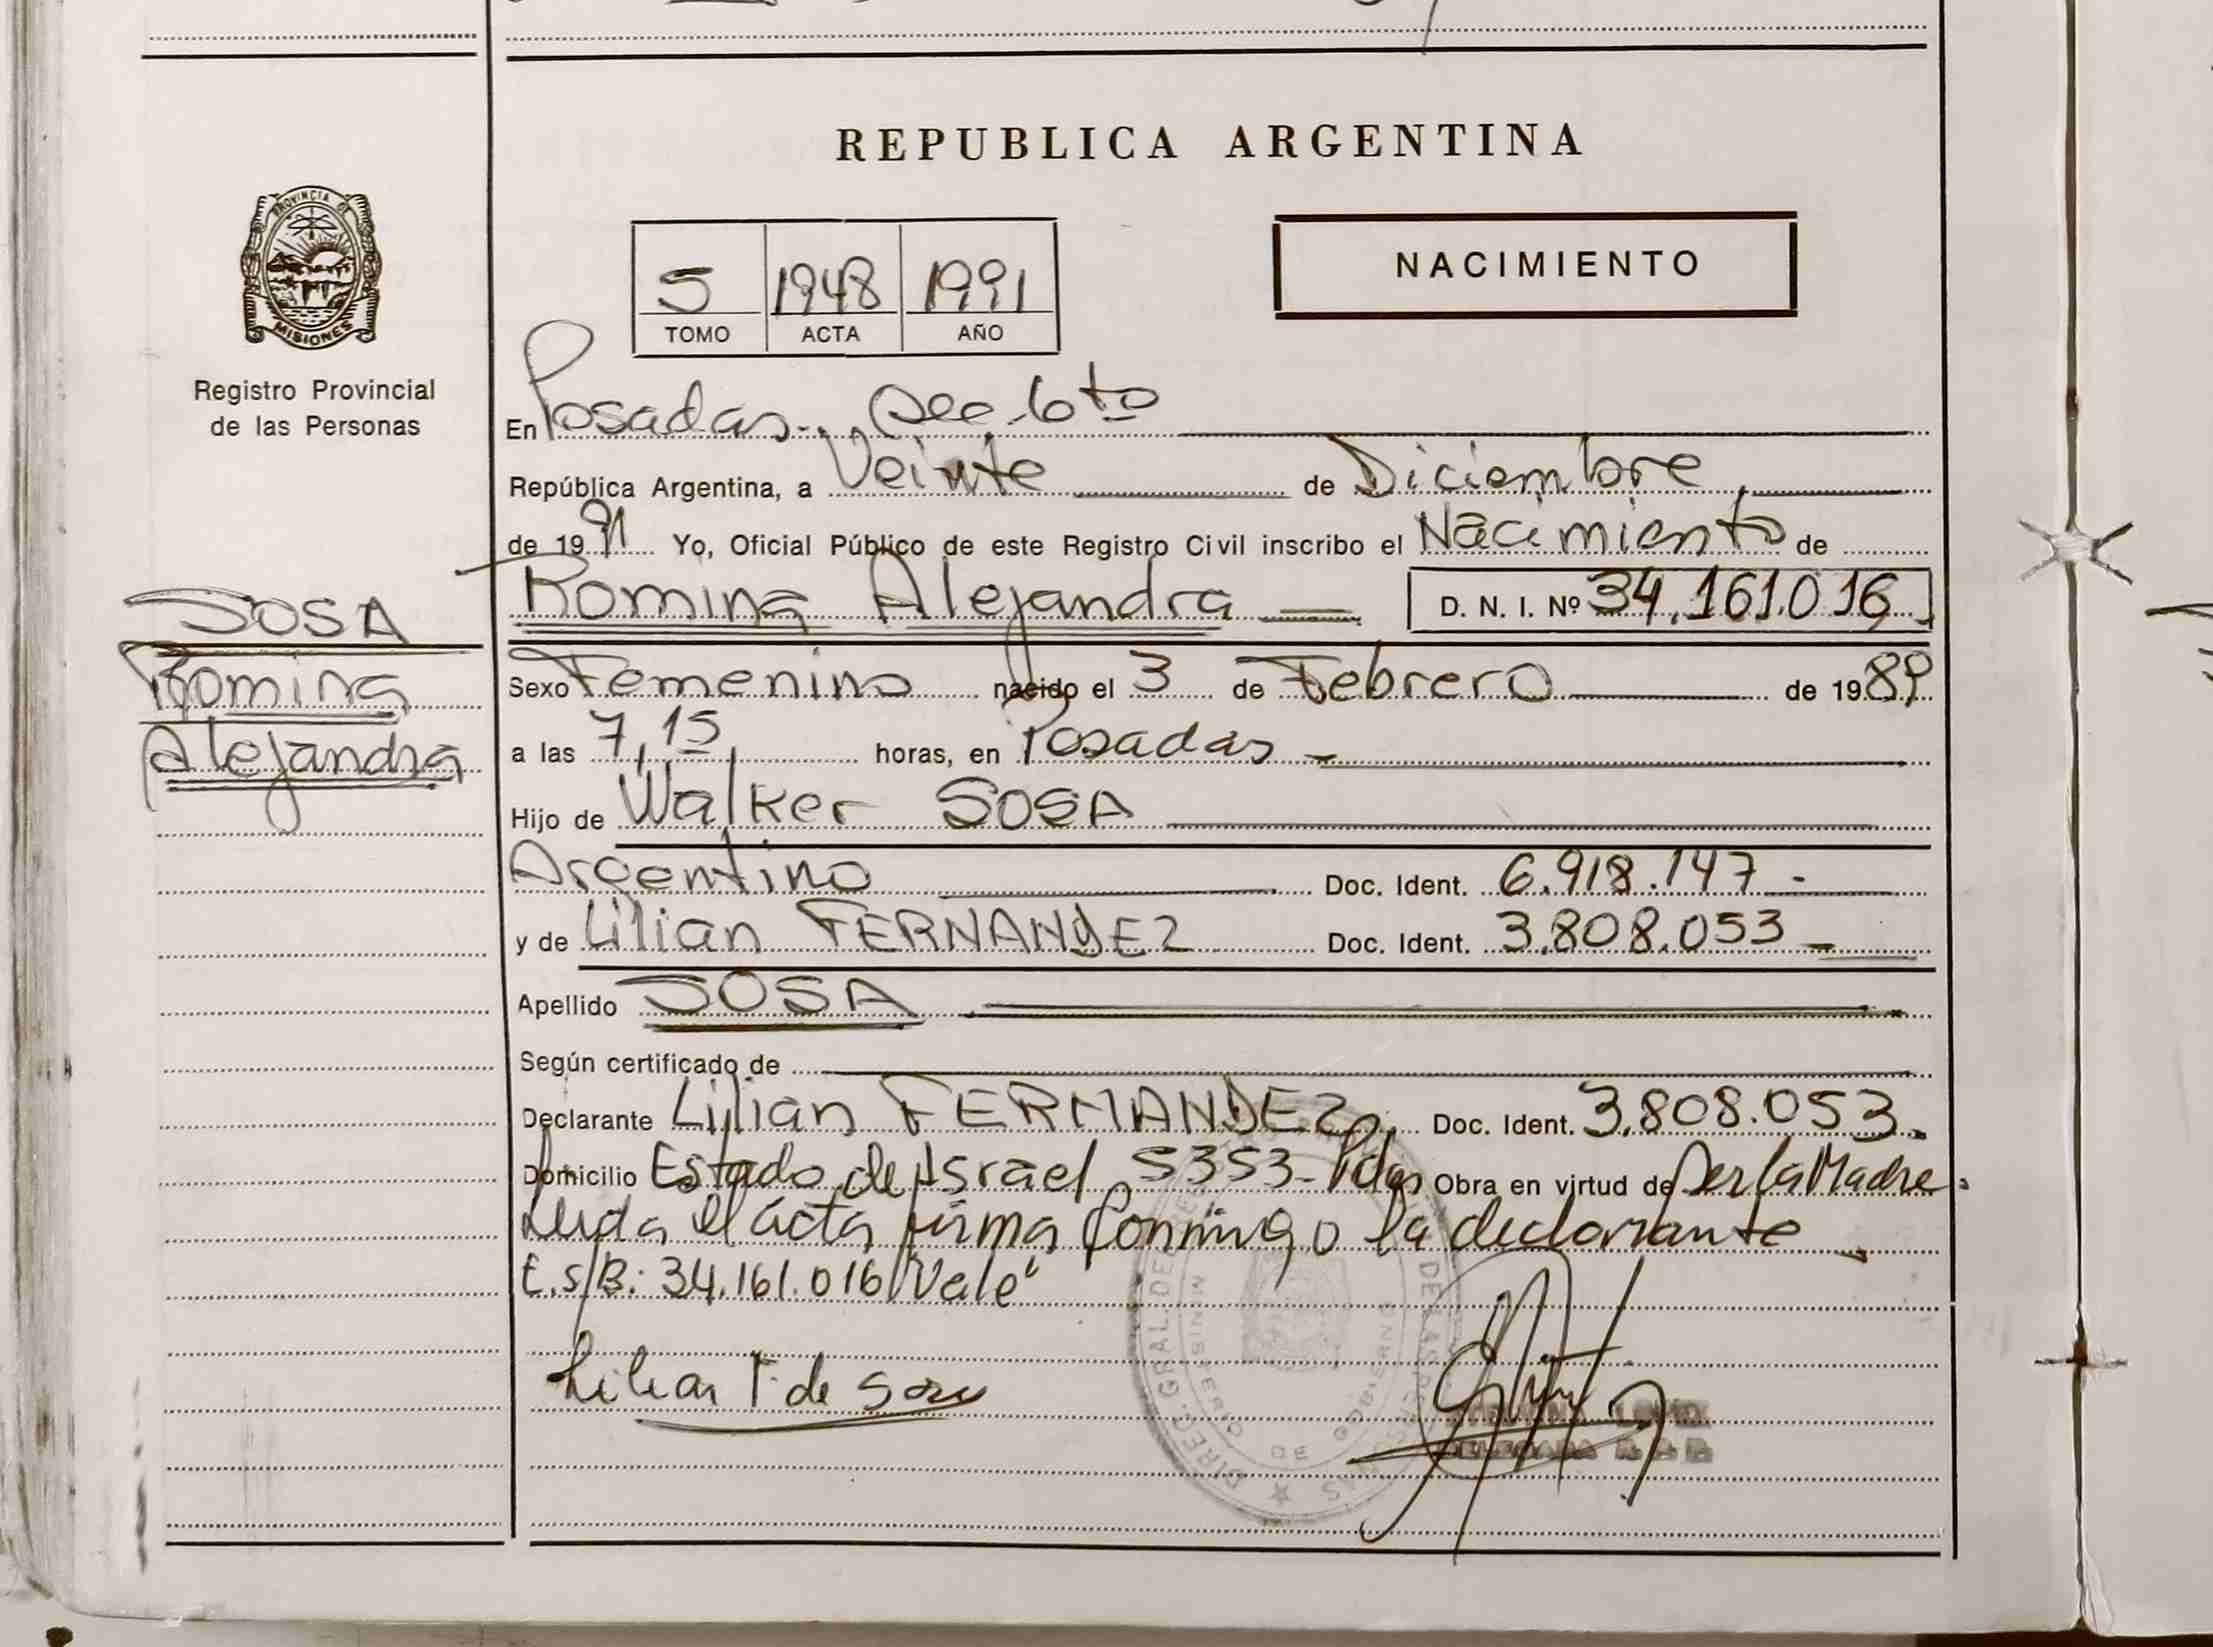 REPUBLICA ARGENTINA
PROVINCIA DE
MISIONES
Registro Provincial
de las Personas
NACIMIENTO
5 1948 1991
TOMO ACTA AÑO
En Posadas.
República Argentina, a Veinte de Diciembre
de 1991 Yo, Oficial Público de este Registro Civil inscribo el Nacimiento de
Romina Alejandra D. N. I. Nº 34.161.016
SOSA
Romina
Alejandra
Sexo Femenino nacido el 3 de Febrero de 1989
a las 7,15 horas, en Posadas
Hijo de Walker SOSA
Argentino Doc. Ident. 6.918.147 -
y de Lilian FERNANDEZ Doc. Ident. 3.808.053 -
Apellido SOSA
Según certificado de
Declarante Lilian FERNANDEZ Doc. Ident. 3.808.053.
Domicilio Estado de Israel 5353 - Pdas Obra en virtud de Ser la Madre.
Leida el acta firma conmigo la declarante
E.s/B: 34.161.016 "Vale"
Lilian F. de Sosa
DIREC. GRAL. DE
MINISTERIO DE GOBIERNO